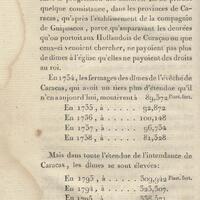 quelque consistance, dans les provinces de Ca-
racas, qu'après l'établissement de la compagnie
de Guipuscoa, parce qu'auparavant les denrées
qu'on portoit aux Hollandois de Curaçao ou que
ceux-ci venoient chercher, ne payoient pas plus
de dîmes à l'église qu'elles ne payoient des droits
au roi.
En 1734, les fermages des dîmes de l'évêché de
Caracas, qui avait un tiers plus d'étendue qu'il
n'en a aujourd'hui, montèrent à 89,372 Piast. fort.
En 1735, à 92,872
En 1736, à 100,148
En 1737, à 96,734
En 1738, à 81,328
Mais dans toute l'étendue de l'intendance de
Caracas, les dîmes se sont élevées:
En 1793, à 309,942 Piast. fort.
En 1794, à 323,507.
En 1795, à